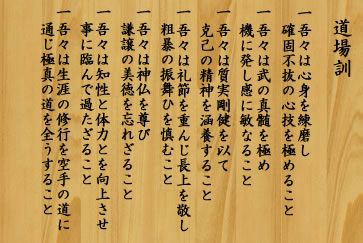 道場訓
一 吾々は心身を練磨し
確固不抜の心技を極めること
一 吾々は武の真髄を極め
機に発し感に敏なること
一 吾々は質実剛健を以て
克己の精神を涵養すること
一 吾々は礼節を重んじ長上を敬し
粗暴の振舞ひを慎むこと
一 吾々は神仏を尊び
謙譲の美徳を忘れざること
一 吾々は知性と体力とを向上させ
事に臨んで過たざること
一 吾々は生涯の修行を空手の道に
通じ極真の道を全うすること